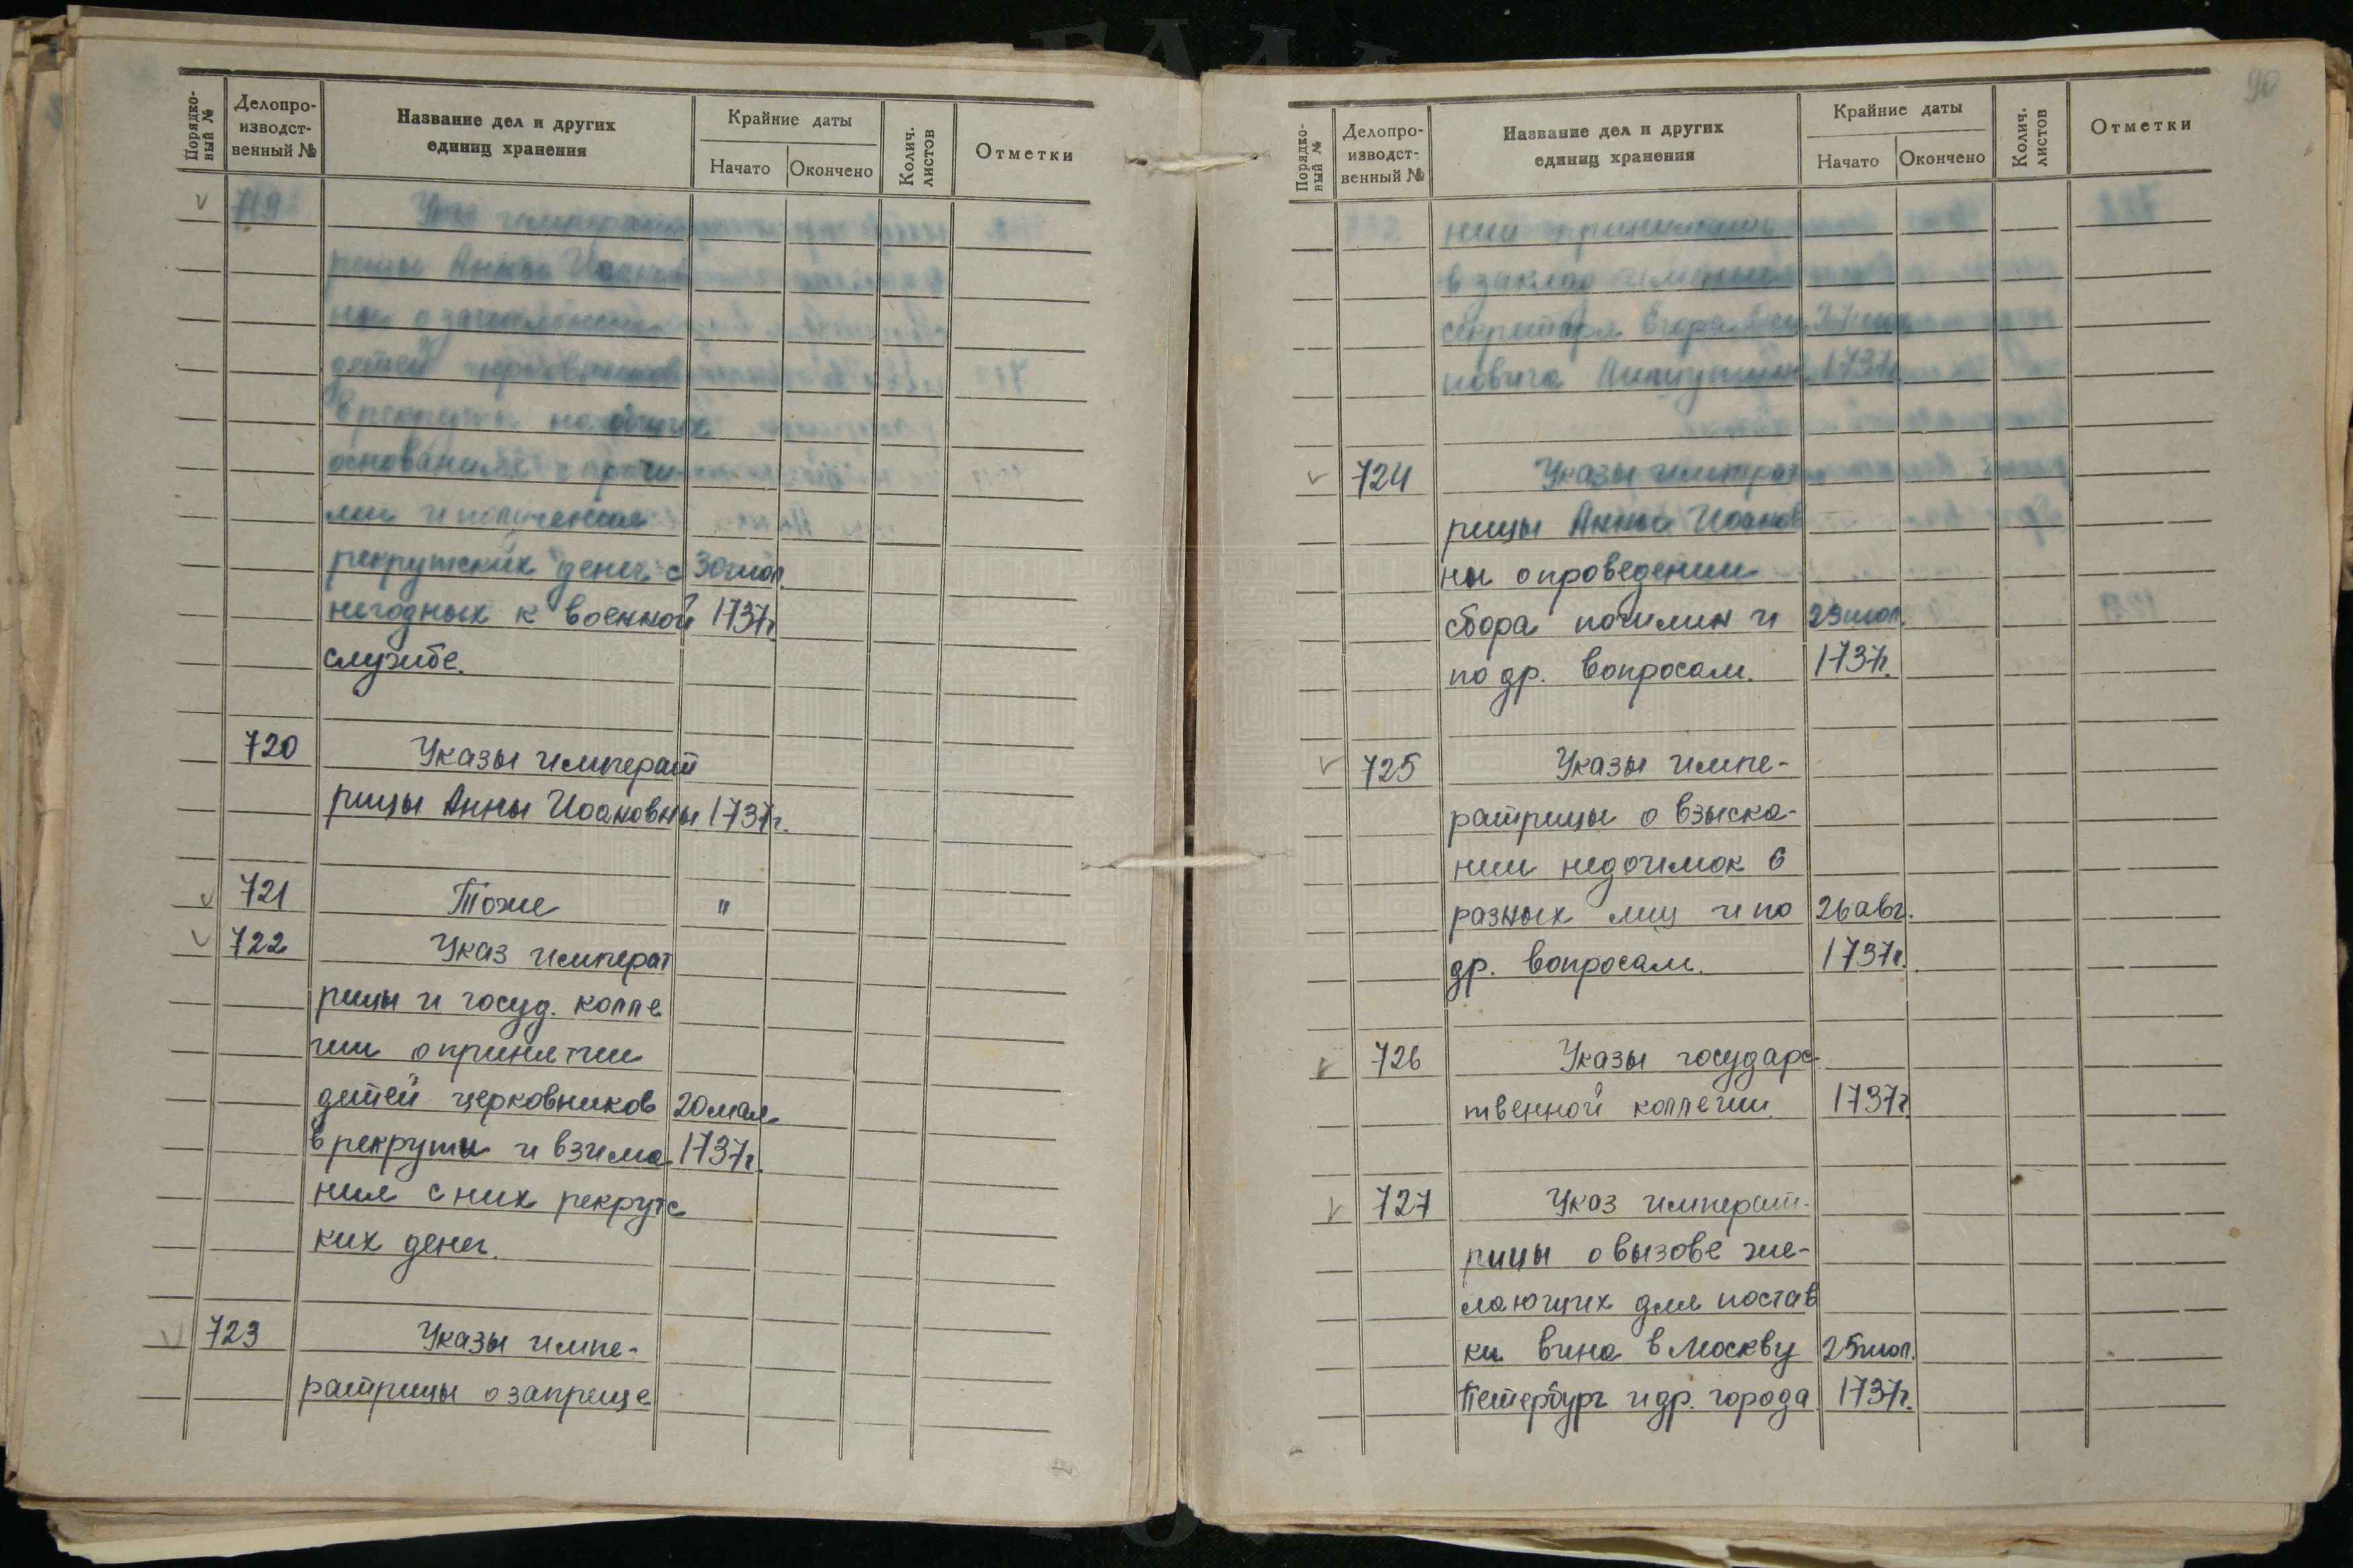 Порядко-
вый №
Делопро-
изводст-
венный №
Название дел и других
единиц хранения
Крайние даты
Начато Окончено
Колич.
листов
Отметки
v 719 Указ императ
рицы Анны Иоанов
ны о зачислении
детей церковников
в рекруты на общих
основаниях с прочи
ми и получении
рекрутских денег с 30 июл.
негодных к военной 1737г
службе.
720 Указы императ
рицы Анны Иоановны 1737г.
v 721 Тоже "
v 722 Указ императ
рицы и госуд. колле
гии о принятии
детей церковников 20 мая
в рекруты и взима 1737г.
ния с них рекрутс
ких денег.
v 723 Указы импе-
ратрицы о запреще
90
Порядко-
вый №
Делопро-
изводст-
венный №
Название дел и других
единиц хранения
Крайние даты
Начато Окончено
Колич.
листов
Отметки
нии принимать
в заклад имений
секретаря Егора
новича 1737г
v 724 Указы императ
рицы Анны Иоанов
ны о проведении
сбора пошлин и 29 июл.
по др. вопросам. 1737г.
v 725 Указы импе-
ратрицы о взыска-
нии недоимок с
разных лиц и по 26 авг.
др. вопросам. 1737г.
v 726 Указы государс
твенной коллегии. 1737г
v 727 Указ императ-
рицы о вызове же-
лающих для постав
ки вина в Москву 25 июл.
Петербург и др. города 1737г.